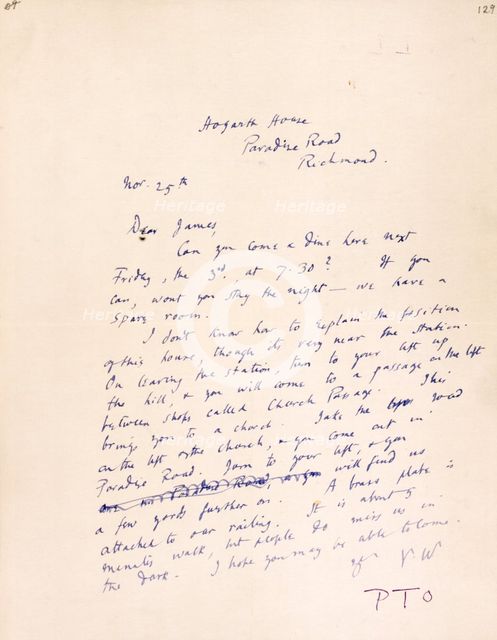 129
Hogarth House
Paradise Road
Richmond.
Nov. 25th
Dear James,
Can you come & dine here next
Friday, the 3rd, at 7.30? If you
can, wont you stay the night — we have a
spare room.
I don't know how to explain the position
of this house, though its very near the station.
On leaving the station, turn to your left up
the hill, & you will come to a passage on the left
between shops called Church Passage. This
brings you to a church. Take the road
on the left of the church, & you come out in
Paradise Road. Turn to your left, & you
will find us
a few yards further on. A brass plate is
attached to our railing. It is about 5
minutes walk, but people do miss us in
the dark. I hope you may be able to come.
V.W
PTO
Heritage
Heritage